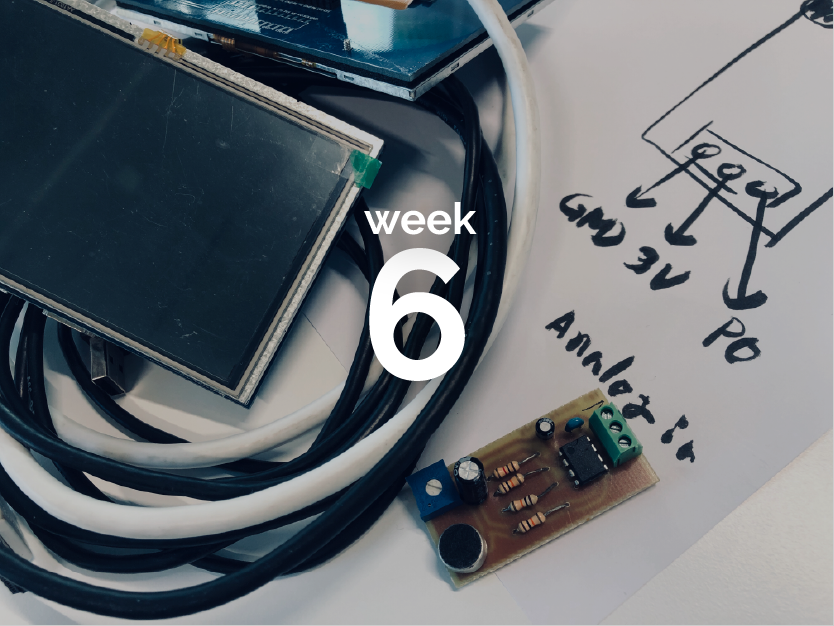 week
6
GND
3V
P0
Analog in